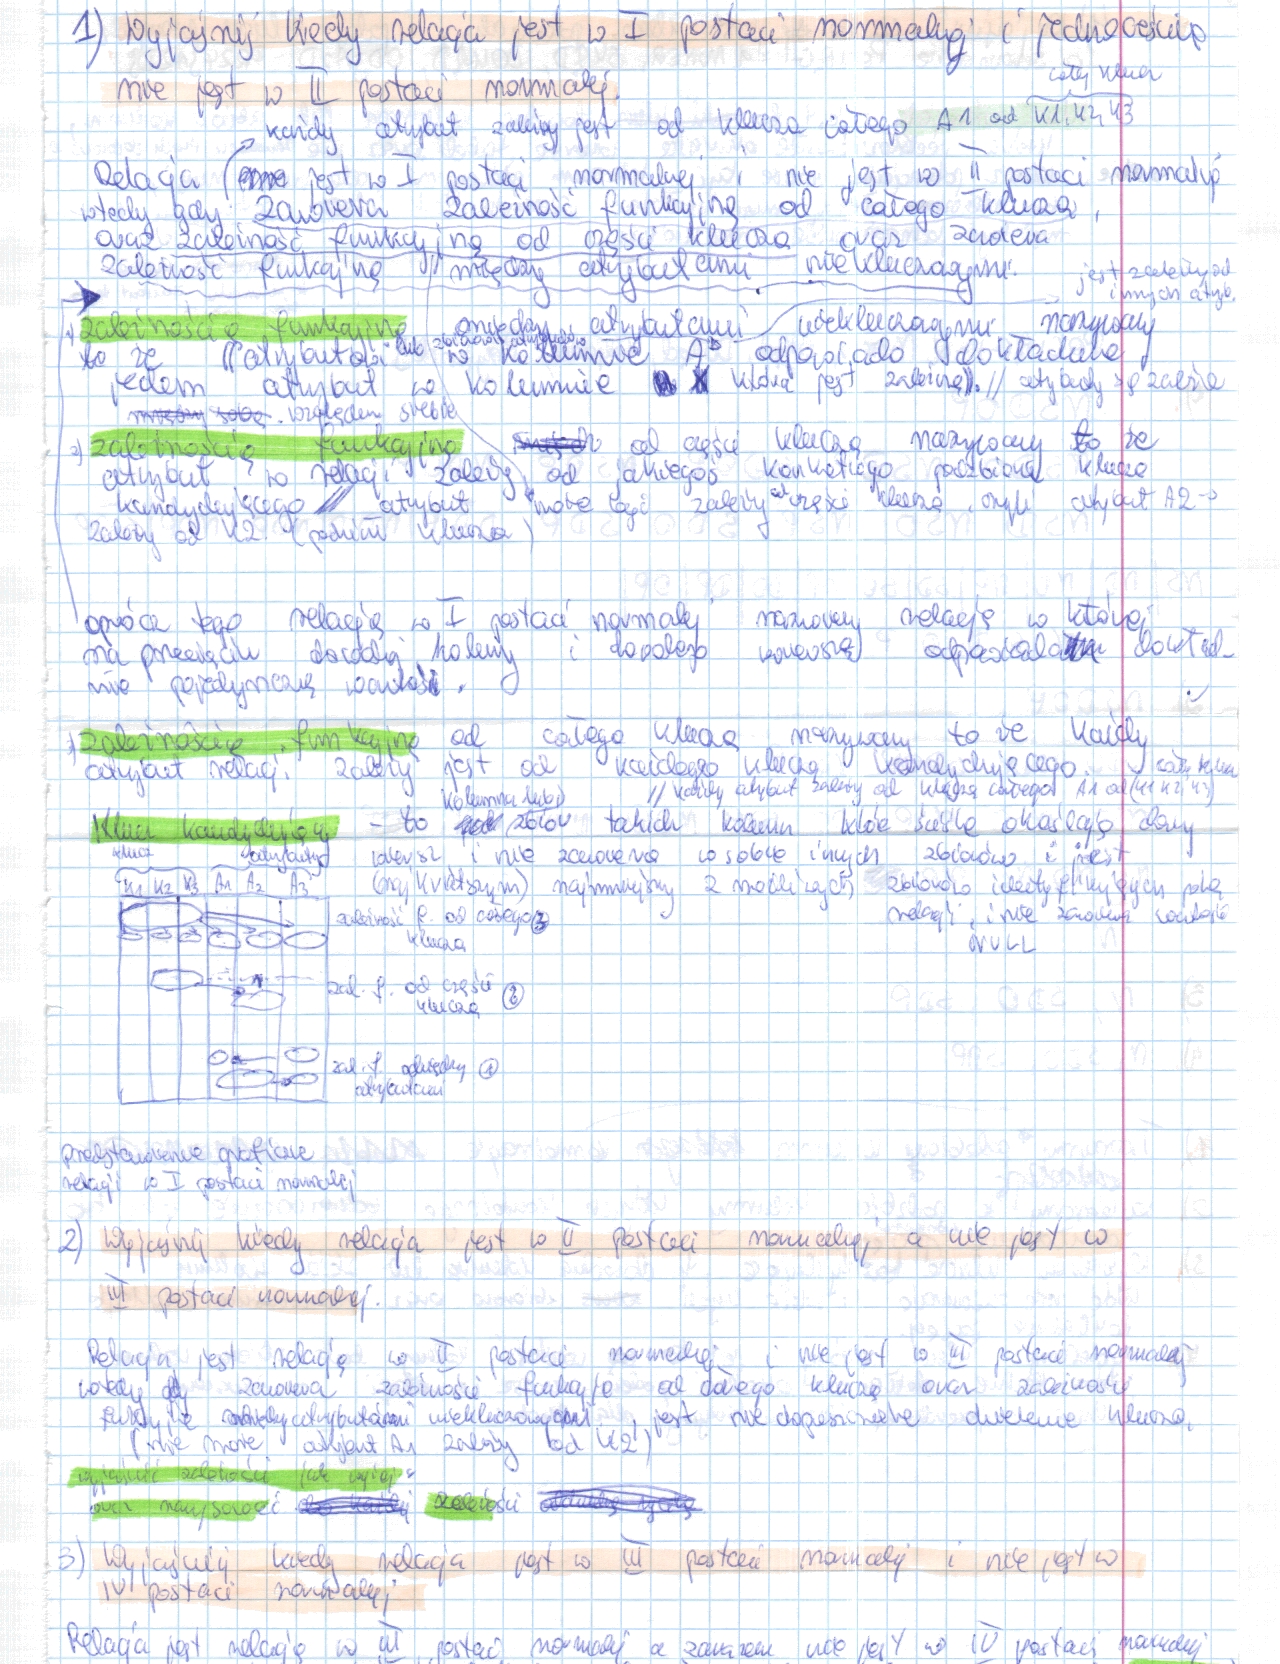 1) Wyjaśnij kiedy relacja jest w I postaci normalnej i jednocześnie
nie jest w II postaci normalnej.
cały klucz
każdy atrybut zależy jest od klucza całego A1 od K1, K2, K3
Relacja jest w I postaci normalnej i nie jest w II postaci normalnej
wtedy gdy zawiera zależność funkcyjną od całego klucza,
oraz zależność funkcyjną od części klucza oraz zawiera
zależność funkcyjną między atrybutami niekluczowymi.
jest zależny od
innych atryb.
1) zależnością funkcyjną między atrybutami niekluczowymi nazywamy
to że atrybutowi w kolumnie A odpowiada dokładnie
jeden atrybut w kolumnie która jest zależna. // atrybuty są zależne
względem siebie
2) zależnością funkcyjną od części klucza nazywamy to że
atrybut w relacji zależy od jakiegoś konkretnego podzbioru klucza
kandydującego // atrybut może być zależny od części klucza, czyli atrybut A2 →
zależy od K2 (podzbiór klucza)
oprócz tego relacją w I postaci normalnej nazywamy relację w której
na przecięciu dowolnej kolumny i dowolnego wiersza odpowiada dokład-
nie pojedyncza wartość.
3) zależnością funkcyjną od całego klucza nazywamy to że każdy
atrybut relacji zależy jest od każdego klucza kandydującego.
kolumna lub // każdy atrybut zależy od klucza całego A1 od (K1 K2 K3)
Klucz kandydujący – to zbiór takich kolumn które ściśle określają dany
klucz atrybuty wiersz i nie zawiera w sobie innych zbiorów i jest
K1 K2 K3 A1 A2 A3 (najkrótszym) najmniejszy z możliwych zbiorów identyfikujących
relacji, i nie zawiera wartości
NULL
zależność f. od całego 3
klucza
zal. f. od części 2
klucza
zal. f. między 1
atrybutami
przedstawienie graficzne
relacji w I postaci normalnej
2) Wyjaśnij kiedy relacja jest w II postaci normalnej, a nie jest w
III postaci normalnej.
Relacja jest relacją w II postaci normalnej i nie jest w III postaci normalnej
wtedy gdy zawiera zależności funkcyjne od całego klucza oraz zależności
funkcyjne między atrybutami niekluczowymi, jest niedopuszczalne dzielenie klucza.
(nie może atrybut A1 zależy od K2)
wyjaśnić zależności jak wyżej
oraz narysować zależności
3) Wyjaśnij kiedy relacja jest w III postaci normalnej i nie jest w
IV postaci normalnej
Relacja jest relacją w III postaci normalnej a zarazem nie jest w IV postaci normalnej